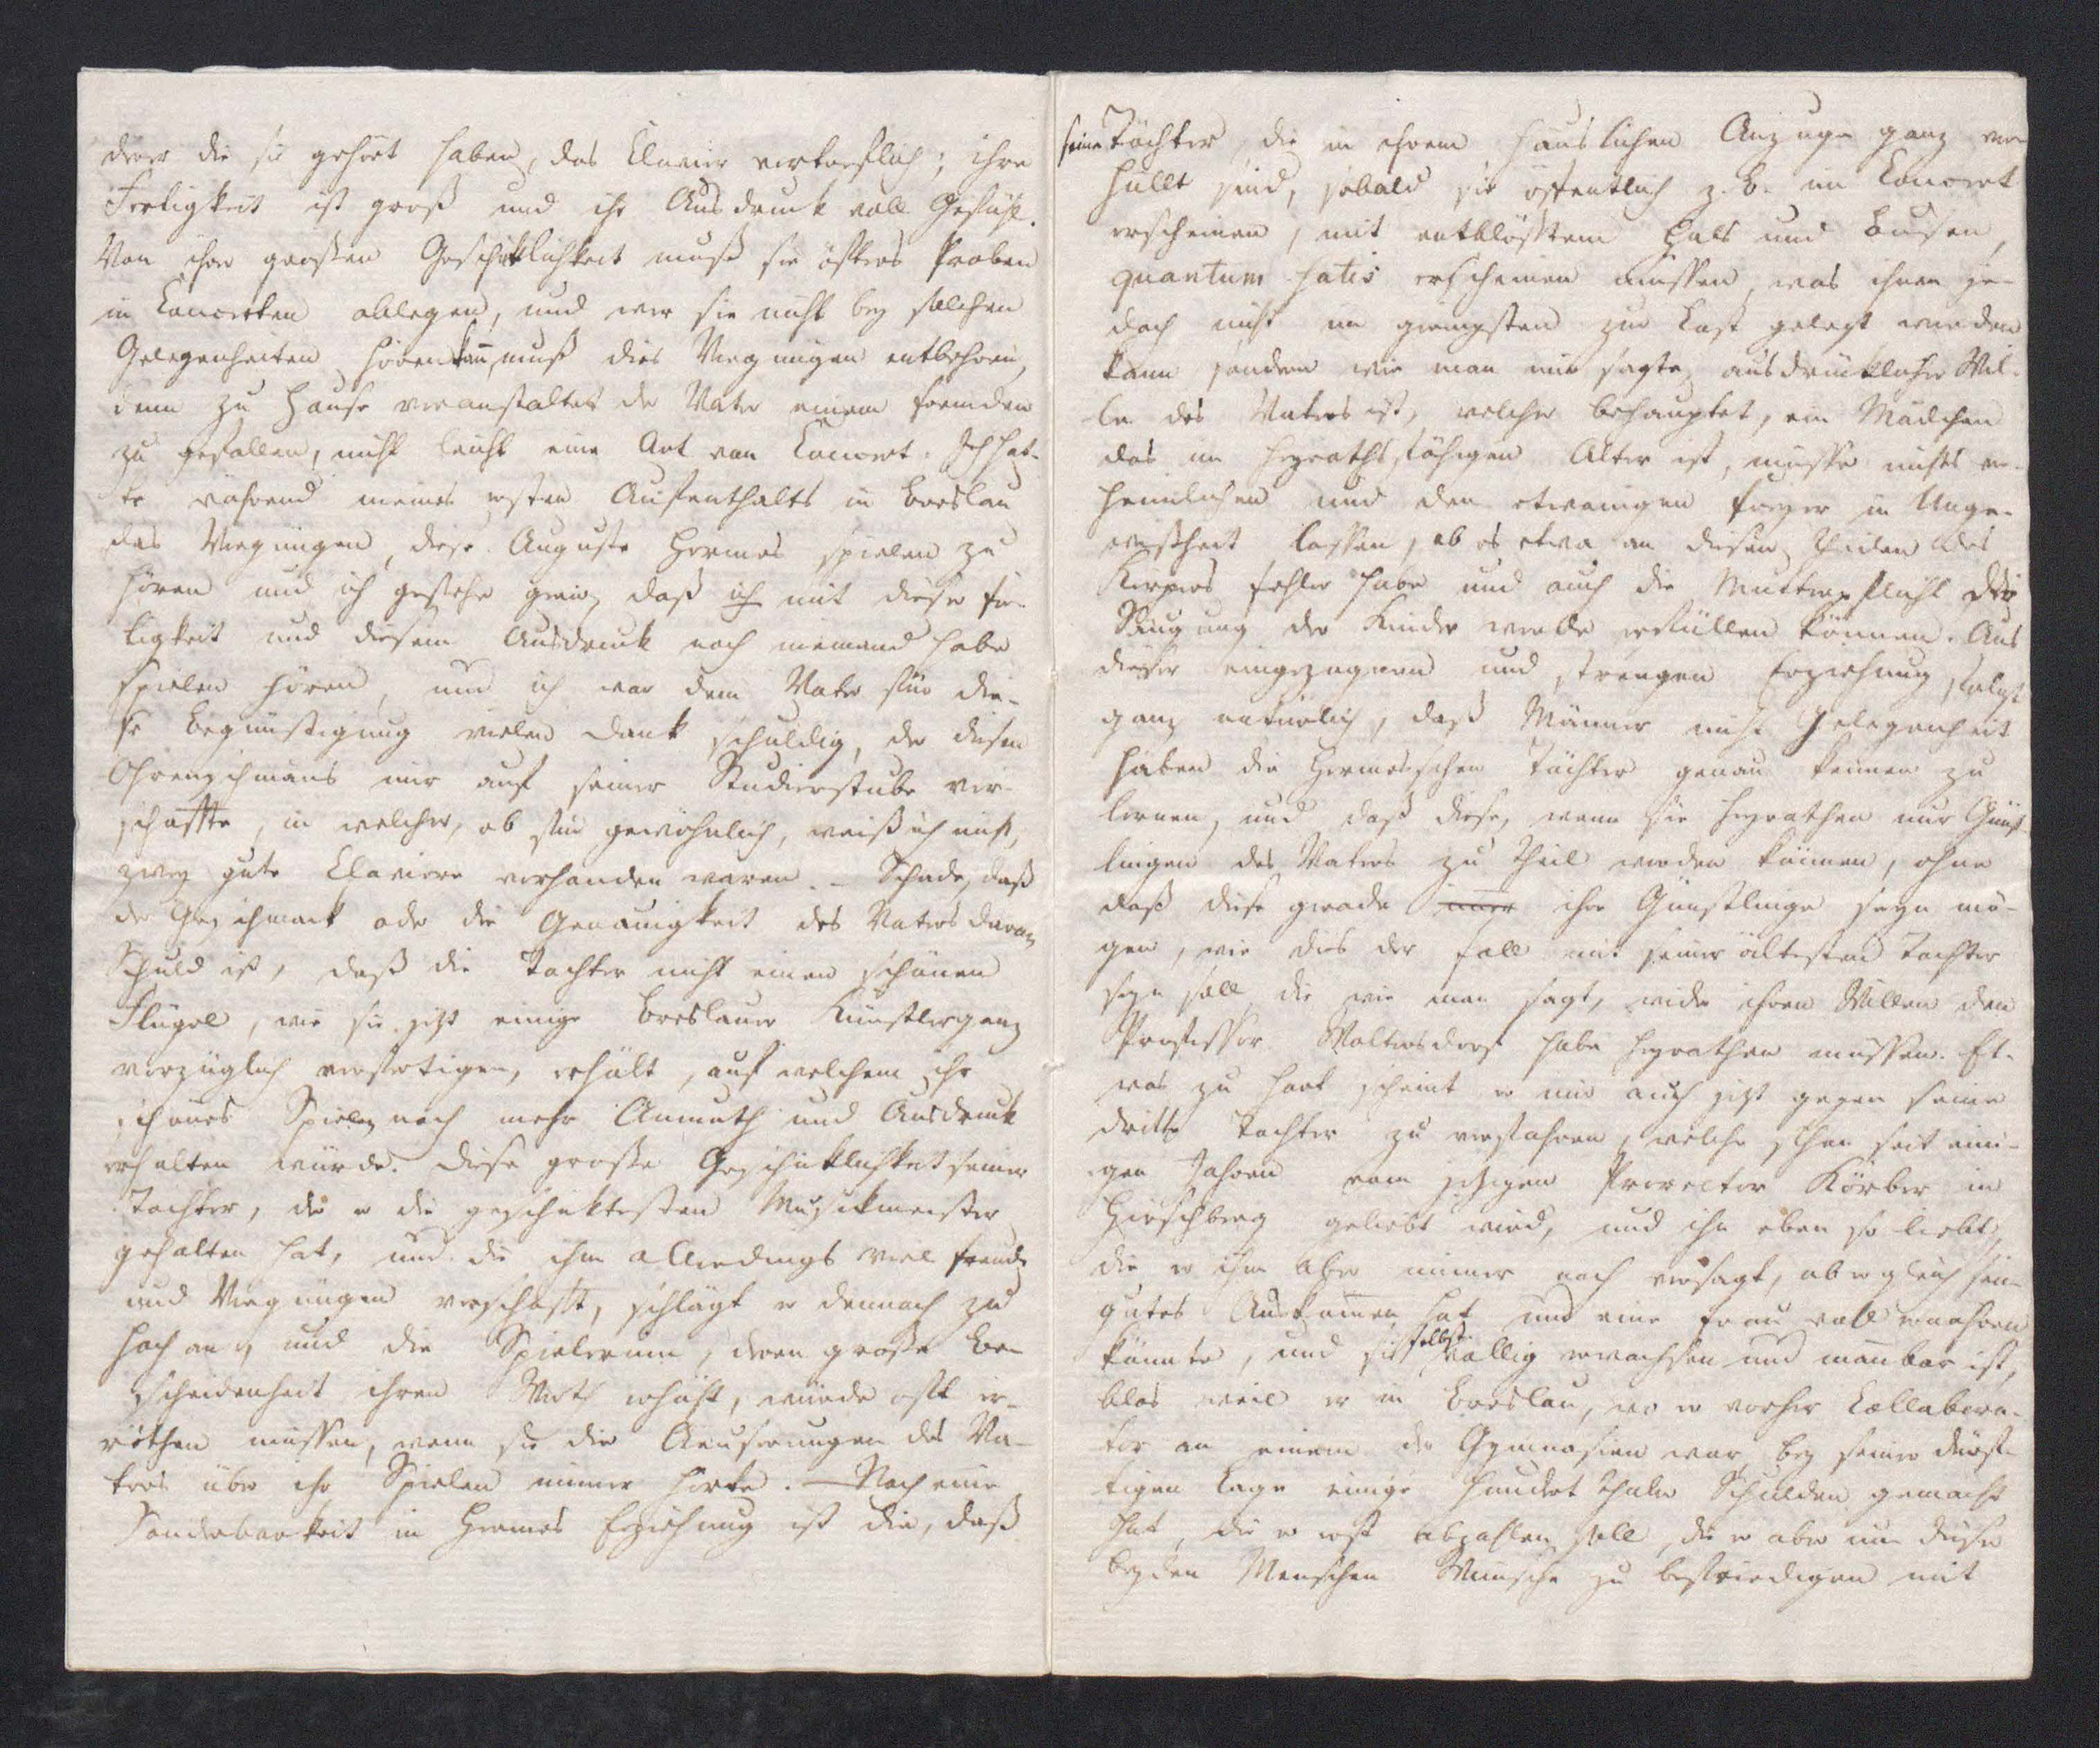 derer die sie gehört haben, das Clavier vortreflich; ihre
Fertigkeit ist groß und ihr Ausdruck voll Gefühl.
Von ihrer grossen Geschiklichkeit muß sie öfters Proben
in Concerten ablegen, und wer sie nicht bey solchen
Gelegenheiten hören kan, muß dies Vergnügen entbehren,
denn zu Hause veranstaltet der Vater einem Fremden
zu gefallen, nicht leicht eine Art von Concert. Ich hat-
te während meines ersten Aufenthalts in Breslau
das Vergnügen, diese Auguste Hermes spielen zu
hören und ich gestehe gern, daß ich mit dieser Fer-
tigkeit und diesem Ausdruck noch niemand habe
spielen hören, und ich war dem Vater für die-
se Begünstigung vielen Dank schuldig, der diesen
Ohrenschmaus mir auf seiner Studierstube ver-
schaffte, in welcher, ob für gewöhnlich, weiß ich nicht,
zwey gute Claviere vorhanden waren. – Schade, daß
der Geschmack oder die Genauigkeit des Vaters daran
Schuld ist, daß die Tochter nicht einen schönen
Flügel, wie sie jezt einige Breslauer Künstler ganz
vorzüglich verfertigen, erhält, auf welchem ihr
schönes Spielen noch mehr Anmuth und Ausdruck
erhalten würde. Diese große Geschicklichkeit seiner
Tochter, der er die geschiktesten Musickmeister
gehalten hat, und die ihm allerdings viel Freude
und Vergnügen verschafft, schlägt er dennoch zu
hoch an, und die Spielerinn, deren große Be-
scheidenheit ihren Werth erhöht, würde oft er-
röthen müssen, wenn sie die Aeusserungen des Va-
ters über ihr Spielen immer hörte. – Noch eine
Sonderbarkeit in Hermes Erziehung ist die, daß
seine Töchter, die in ihrem häuslichen Anzuge ganz ver-
hüllt sind, sobald sie öffentlich z. B. im Concert
erscheinen, mit entblößtem Hals und Busen,
quantum satis erscheinen müssen, was ihnen je-
doch nicht im geringsten zur Last gelegt werden
kann sondern wie man mir sagte, ausdrücklicher Wil-
le des Vaters ist, welcher behauptet, ein Mädchen
das im heyrathsfähigen Alter ist, müsse nichts ver-
heimlichen und den etwanigen Freyer in Unge-
wißheit lassen, ob es etwa an diesen Theilen des
Körpers Fehler habe und auch die Mutterpflicht der
Säugung der Kinder werde erfüllen können. Aus
dieser eingezogenen und strengen Erziehung folgt
ganz natürlich, daß Männer nicht Gelegenheit
haben die Hermesschen Töchter genau kennen zu
lernen, und daß diese, wenn sie heyrathen nur Günst-
lingen des Vaters zu Theil werden können, ohne
daß diese gerade immer ihre Günstlinge seyn mö-
gen, wie dies der Fall mit seiner ältesten Tochter
seyn soll die wie man sagt, wider ihren Willen den
Professor Woltersdorf habe heyrathen müssen. Et-
was zu hart scheint er mir auch jezt gegen seine
dritte Tochter zu verfahren, welche schon seit eini-
gen Jahren vom jetzigen Prorector Körber in
Hirschberg geliebt wird, und ihn eben so liebt,
die er ihm aber immer noch versagt, ob er gleich sein
gutes Auskomen hat und eine Frau wohl ernähren
könnte, und sie selbst völlig erwachsen und manbar ist,
blos weil er in Breslau, wo er vorher Collabora-
tor an einem der Gymnasien war, bey seiner dürf-
tigen Lage einige hundert Thaler Schulden gemacht
hat, die er erst abzahlen soll, die er aber um dieser
beyden Menschen Wünsche zu befriedigen mit